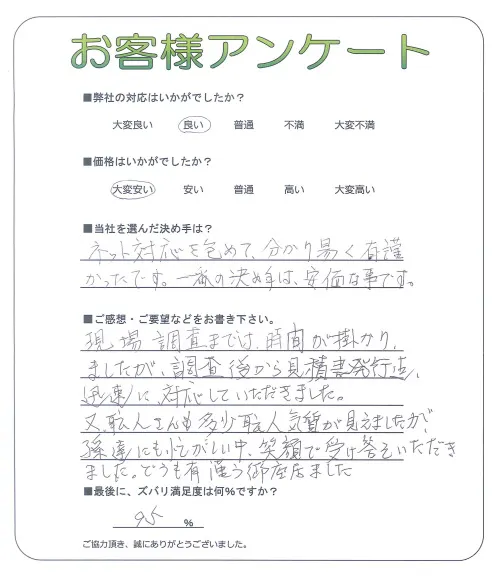 お客様アンケート
■弊社の対応はいかがでしたか？
大変良い 良い 普通 不満 大変不満
■価格はいかがでしたか？
大変安い 安い 普通 高い 大変高い
■当社を選んだ決め手は？
ネット対応を含めて、分かり易く有難
かったです。一番の決め手は、安価な事です。
■ご感想・ご要望などをお書き下さい。
現場調査までは、時間が掛かり、
ましたが、調査後から見積書発行迄、
迅速に、対応していただきました。
又、職人さんも多少職人気質が見えましたが、
孫達にも忙がしい中、笑顔で受け答えいただき
ました。どうも有難う御座居ました
■最後に、ズバリ満足度は何％ですか？
95 %
ご協力頂き、誠にありがとうございました。